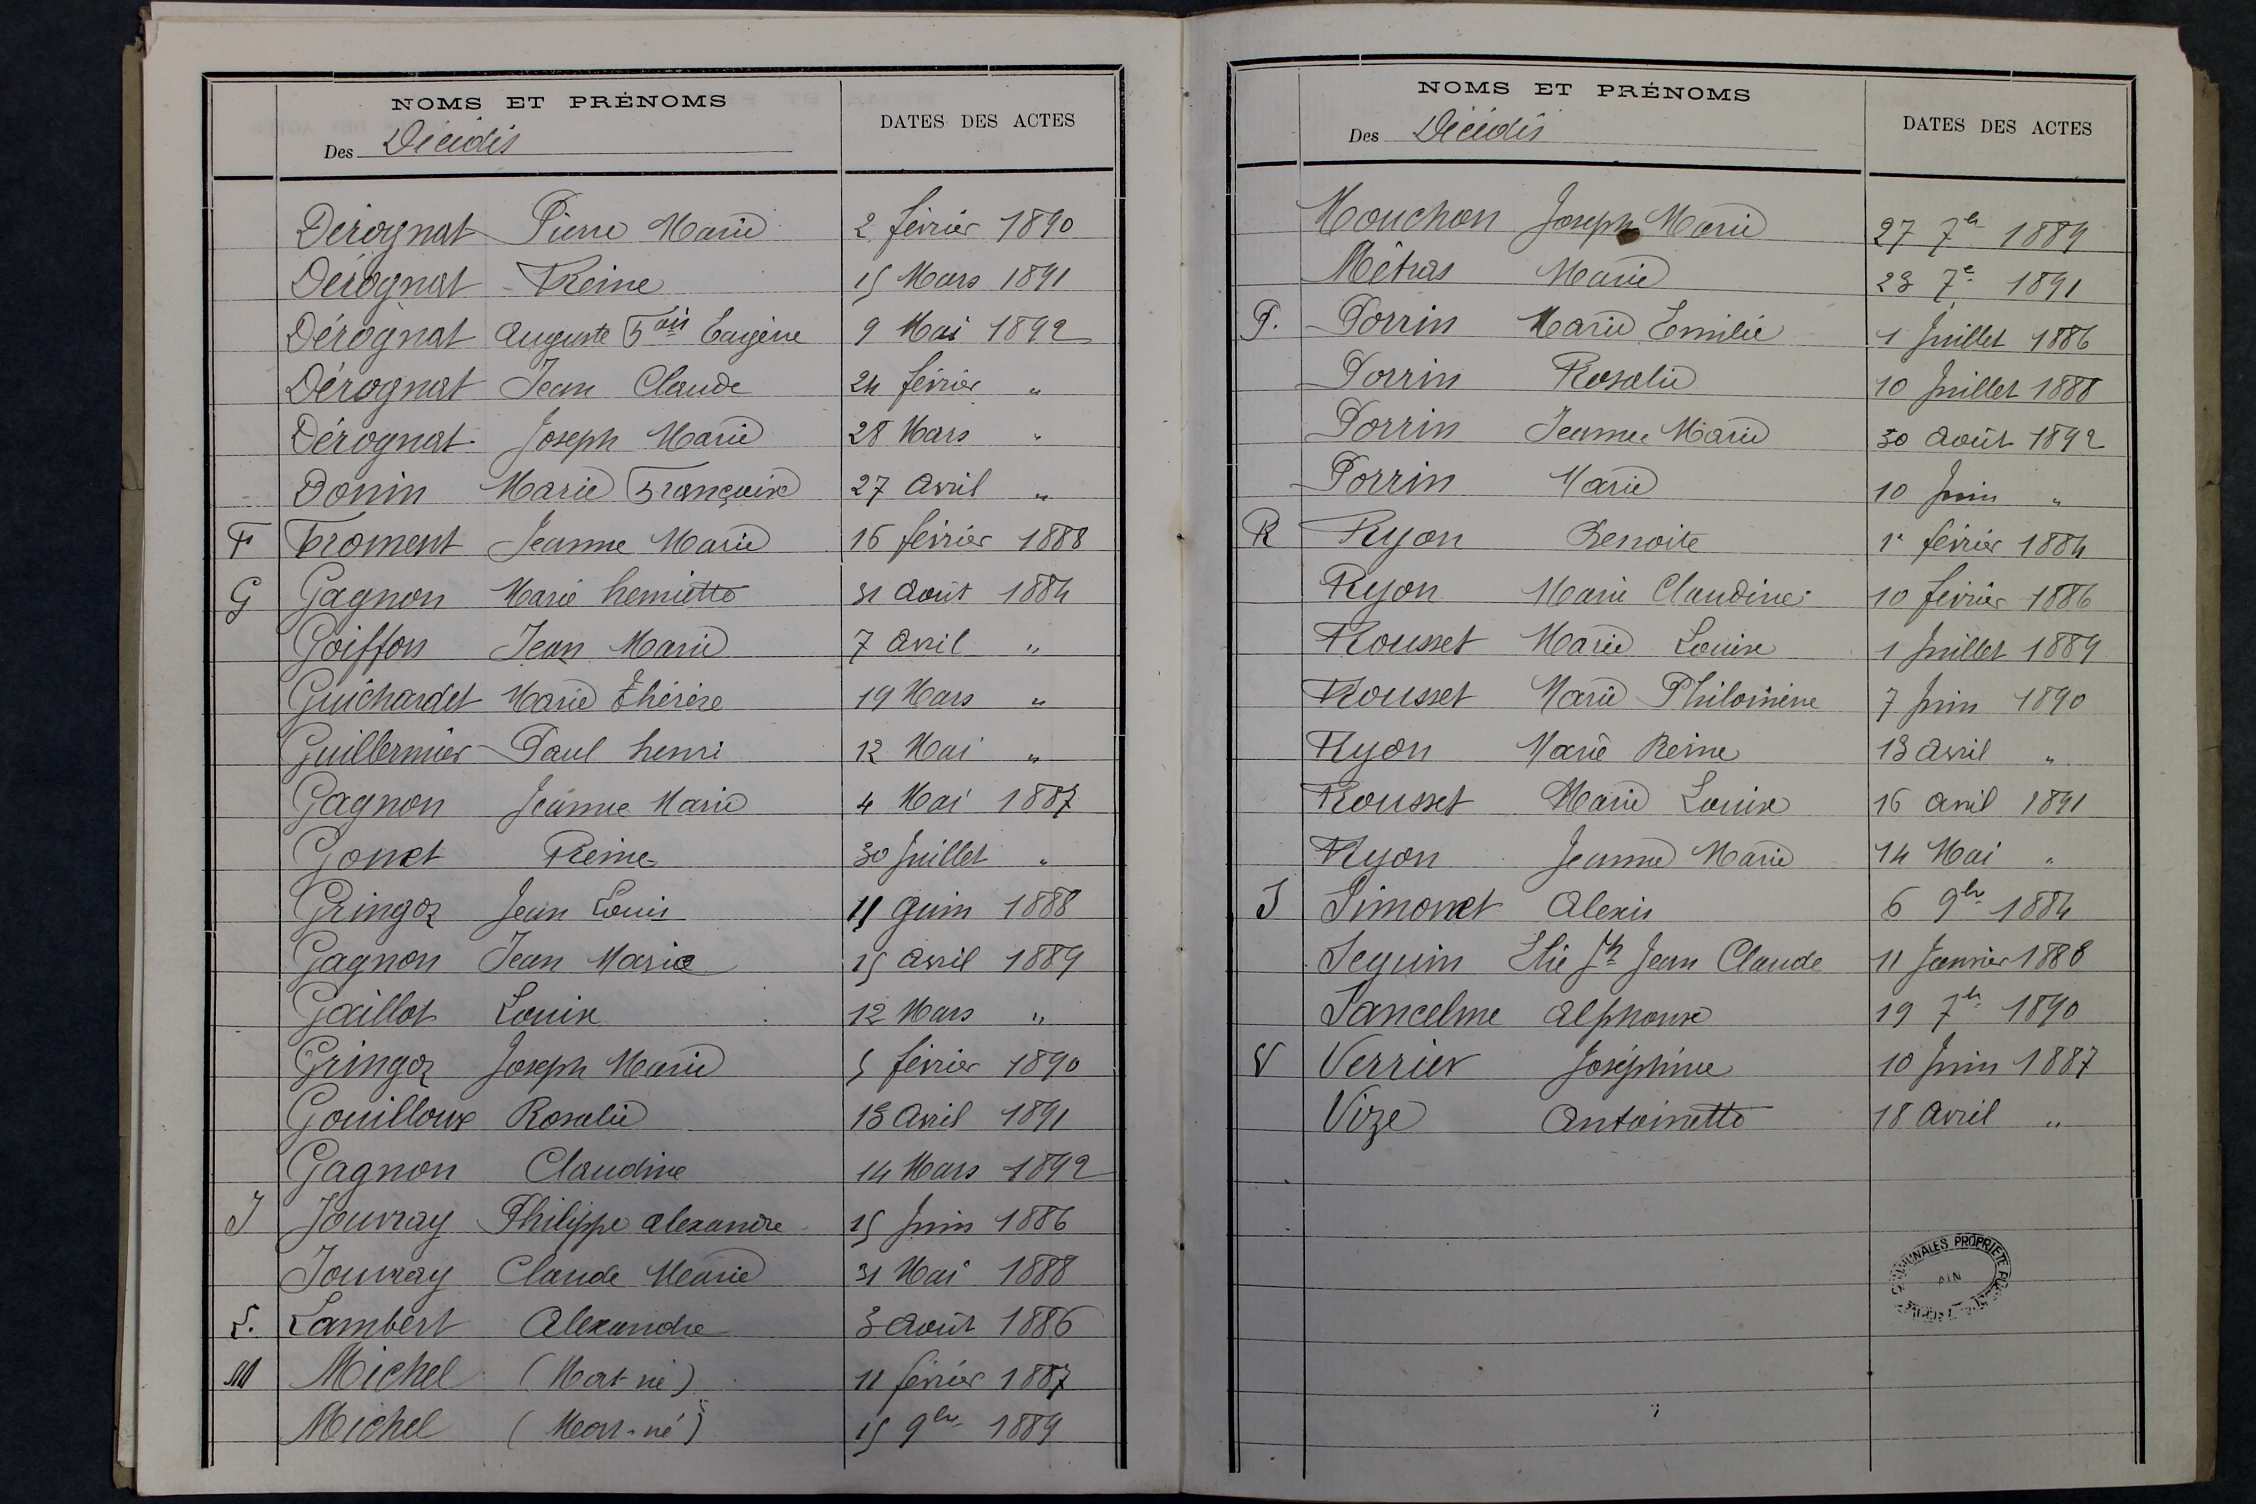 NOMS ET PRÉNOMS
Des Décédés
DATES DES ACTES
Dérognat Pierre Marie 2 février 1890
Dérognat Reine 15 Mars 1891
Dérognat Auguste Fois Eugène 9 Mai 1892
Dérognat Jean Claude 24 février "
Dérognat Joseph Marie 28 Mars "
Donin Marie Françoise 27 Avril "
F Froment Jeanne Marie 16 février 1888
G Gagnon Marie henriette 31 Août 1884
Goiffon Jean Marie 7 Avril "
Guichardet Marie Thérèse 19 Mars "
Guillermier Paul henri 12 Mai "
Gagnon Jeanne Marie 4 Mai 1887
Gonet Reine 30 Juillet "
Gringoz Jean Louis 11 Juin 1888
Gagnon Jean Marie 15 Avril 1889
Gaillot Louise 12 Mars "
Gringoz Joseph Marie 5 février 1890
Gouilloux Rosalie 13 Avril 1891
Gagnon Claudine 14 Mars 1892
J Jouvray Philippe Alexandre 15 Juin 1886
Jouvray Claude Marie 31 Mai 1888
L. Lambert Alexandre 3 Août 1886
M Michel (Mort-né) 11 février 1887
Michel (Mort-né) 15 9bre 1889
NOMS ET PRÉNOMS
Des Décédés
DATES DES ACTES
Mouchon Joseph Marie 27 7b 1889
Métras Marie 23 7e 1891
P. Porrin Marie Emilie 1 Juillet 1886
Porrin Rosalie 10 Juillet 1888
Porrin Jeanne Marie 30 Août 1892
Porrin Marie 10 Juin "
R Ryon Benoite 1r février 1884
Ryon Marie Claudine 10 février 1886
Rousset Marie Louise 1 Juillet 1889
Rousset Marie Philomène 7 Juin 1890
Ryon Marie Reine 13 Avril "
Rousset Marie Louise 16 Avril 1891
Ryon Jeanne Marie 14 Mai "
S Simonet Alexis 6 9bre 1884
Seguin Elie Jh Jean Claude 11 Janvier 1888
Sancelme Alphonse 19 7b 1890
V Verrier Joséphine 10 Juin 1887
Vize Antoinette 18 Avril "
COMMUNALES PROPRIÉTÉ
AIN